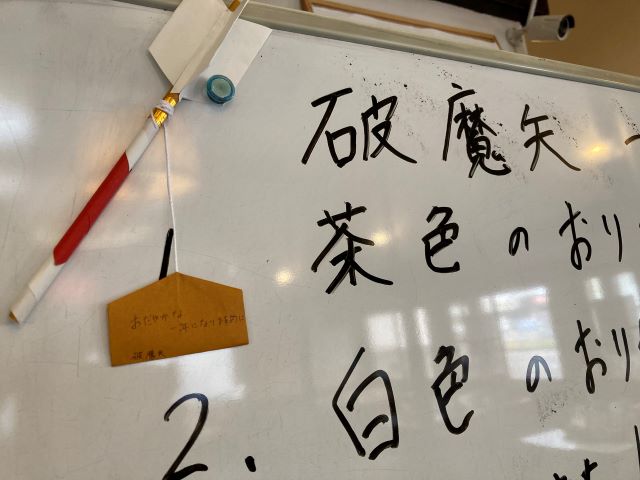 破魔矢
茶色のおり
2. 白色のおり
おだやかな
一年になりますように
破魔矢